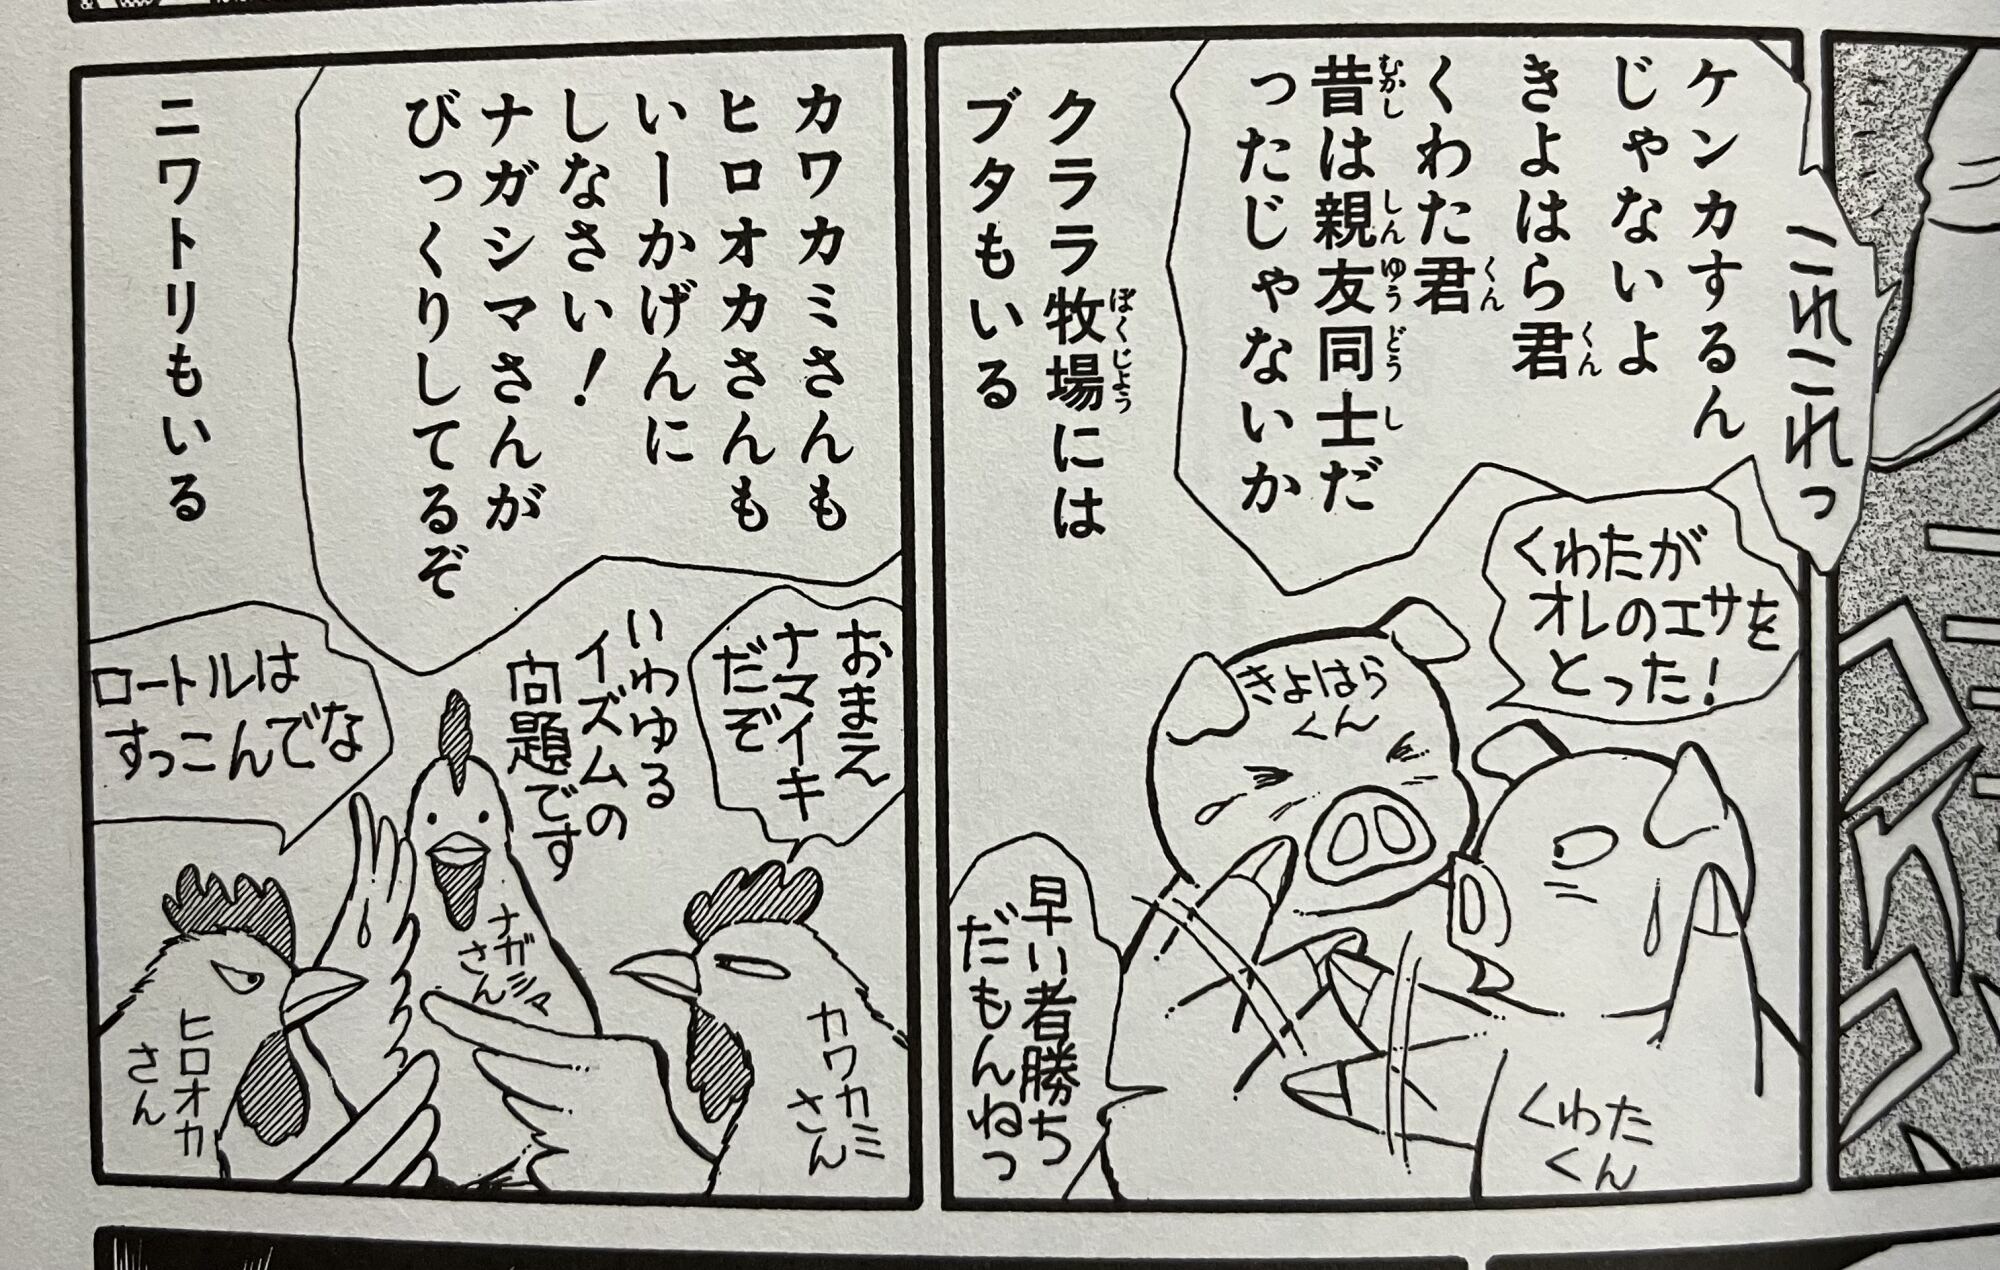 これこれっ
ケンカするん
じゃないよ
きよはら君
くわた君
昔は親友同士だ
ったじゃないか
くわたが
オレのエサを
とった!
きよはら
くん
くわた
くん
早い者勝ち
だもんねっ
クララ牧場には
ブタもいる
カワカミさんも
ヒロオカさんも
いーかげんに
しなさい!
ナガシマさんが
びっくりしてるぞ
おまえ
ナマイキ
だぞ
いわゆる
イズムの
問題です
ロートルは
すっこんでな
カワカミ
さん
ナガシマ
さん
ヒロオカ
さん
ニワトリもいる